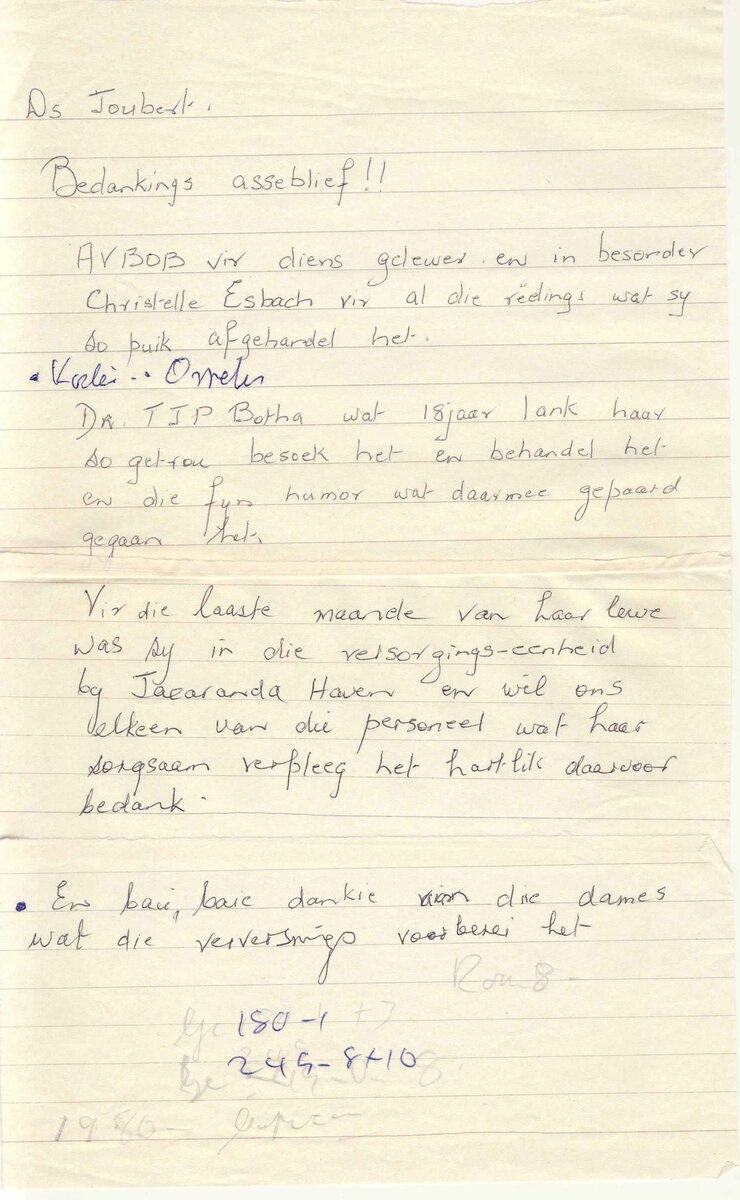 Ds Joubert.
Bedankings asseblief!!
AVBOB vir diens gelewer en in besonder
Christelle Esbach vir al die rëelings wat sy
so puik afgehandel het.
Dr. TJP Botha wat 18jaar lank haar
so getrou besoek het en behandel het
en die fyn humor wat daarmee gepaard
gegaan het.
Vir die laaste maande van haar lewe
was sy in die versorgings-eenheid
by Jacaranda Haven en wil ons
elkeen van die personeel wat haar
sorgsaam verpleeg het hartlik daarvoor
bedank.
• En baie, baie dankie aan die dames
wat die verversings voorberei het
Rom 8-
180-1 +3
249-8+10